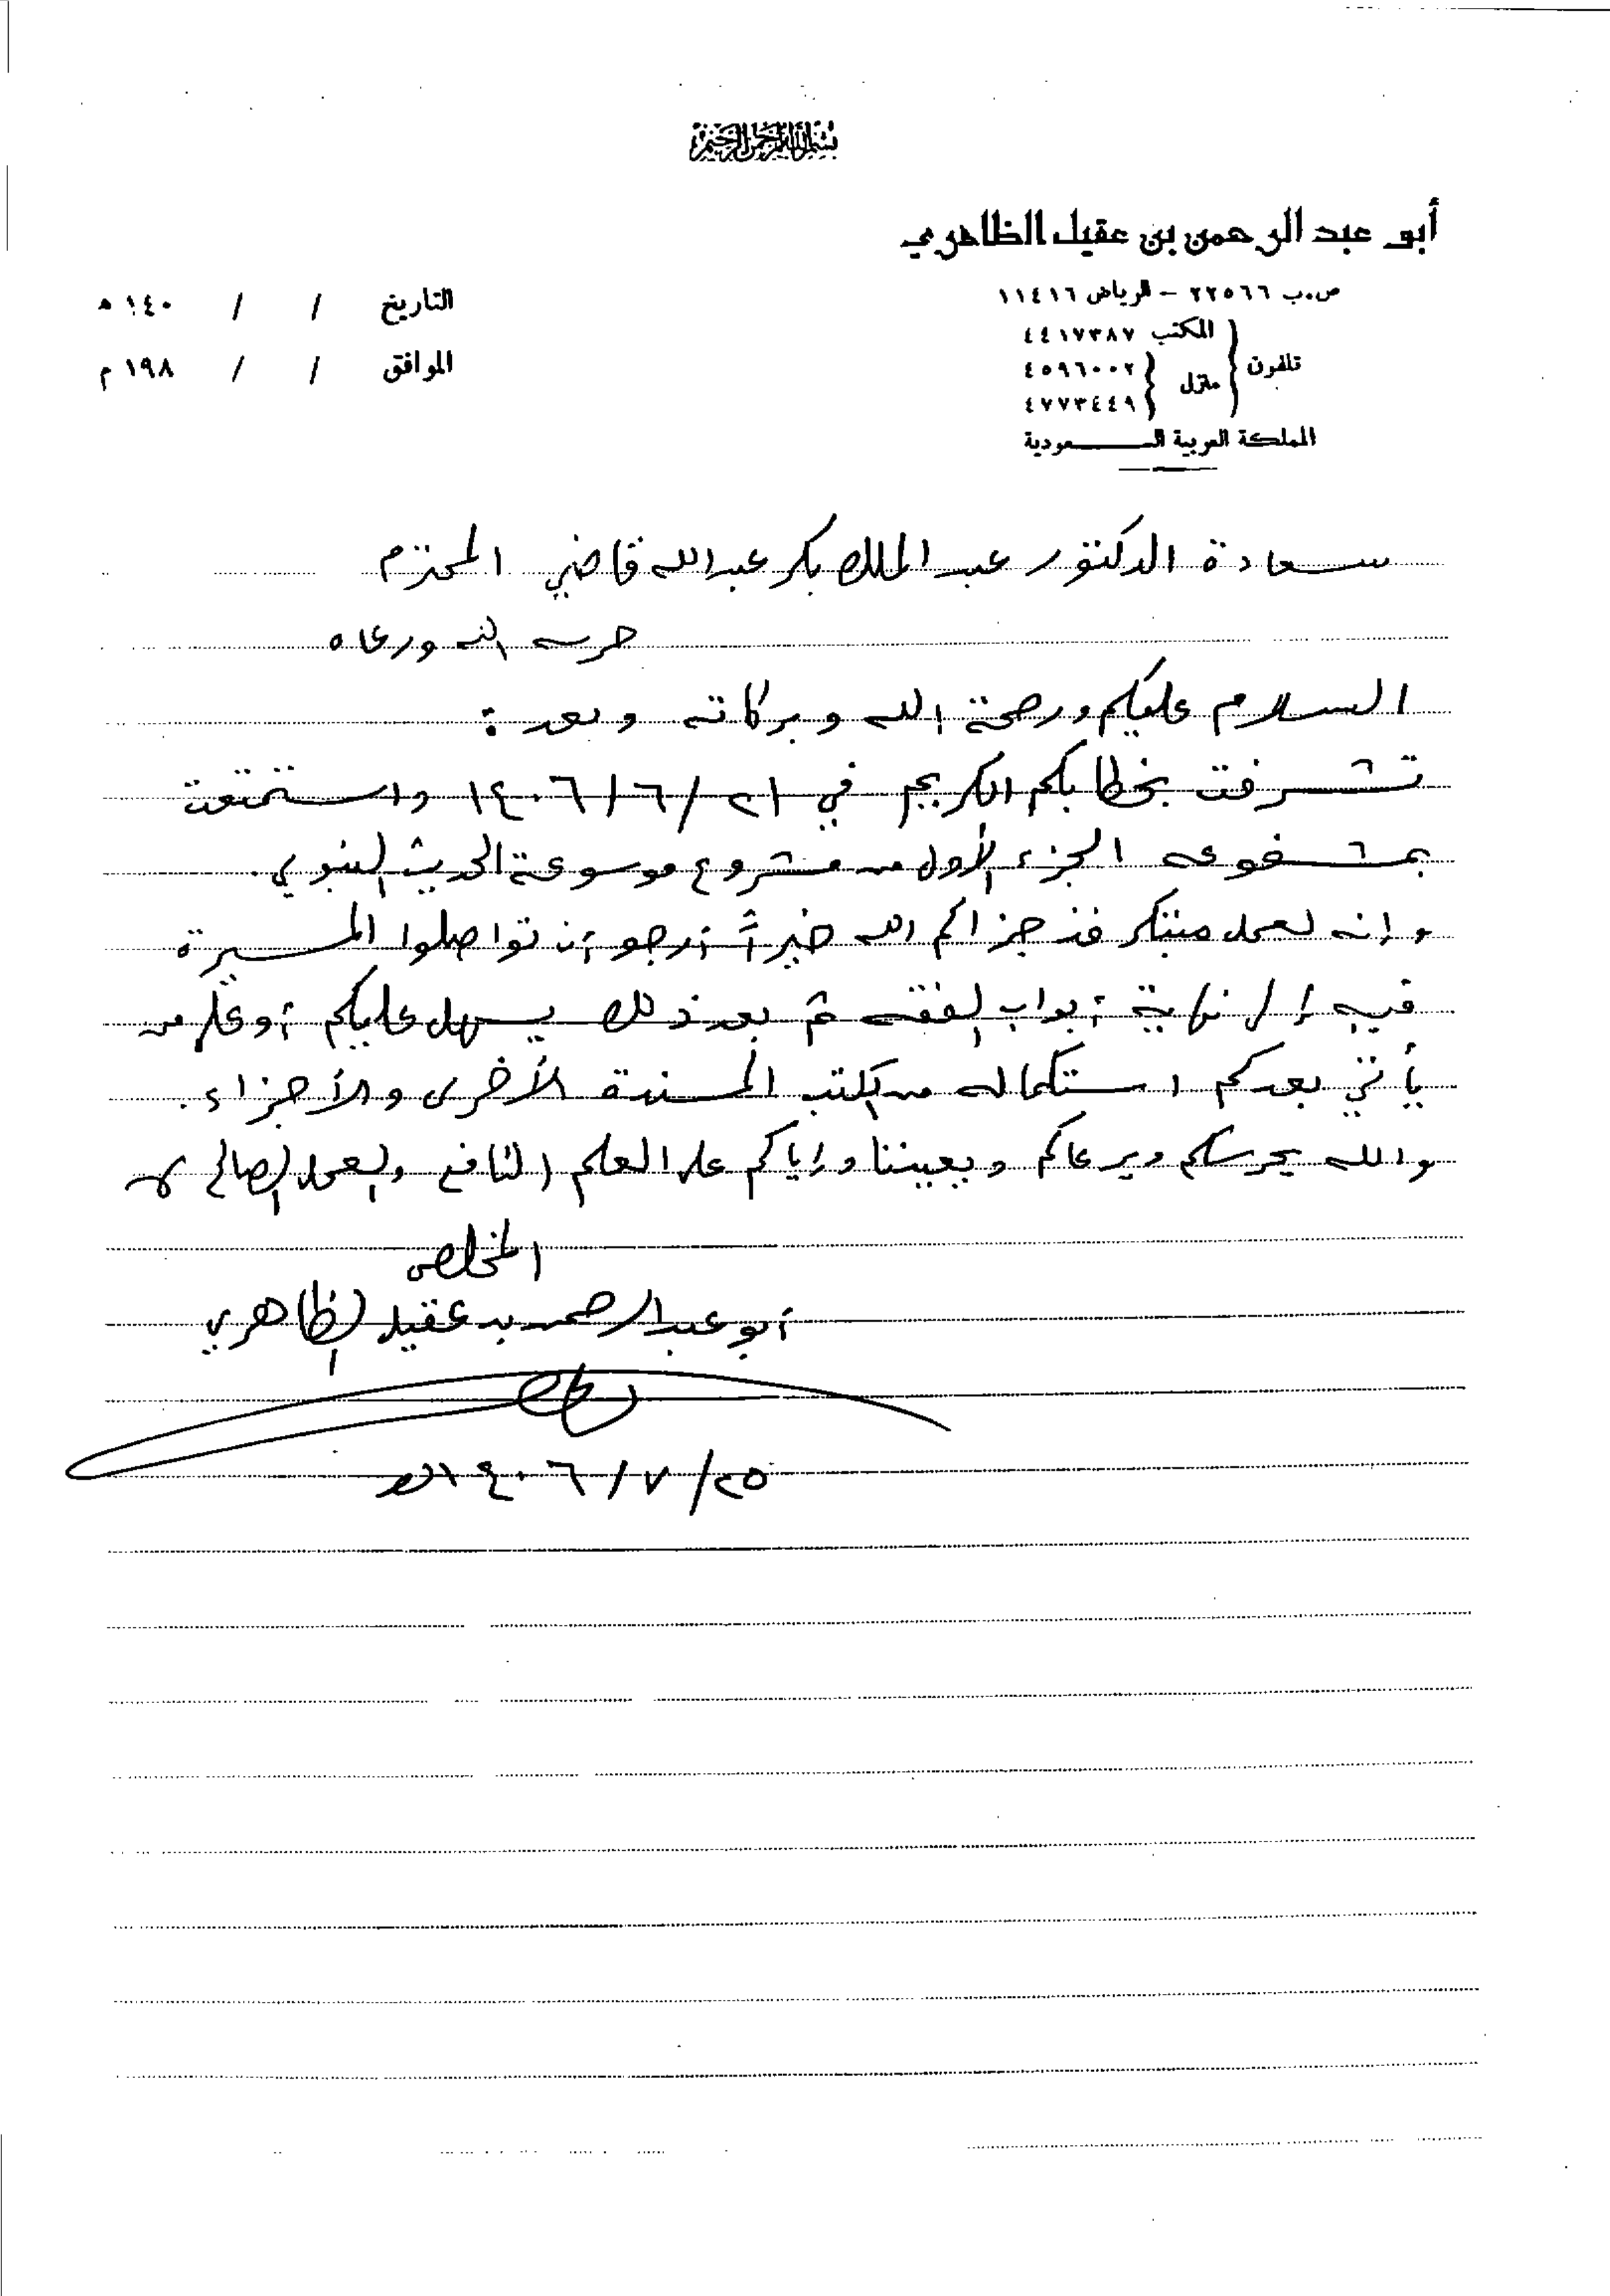 بسم الله الرحمن الرحيم
أبو عبد الرحمن بن عقيل الظاهري
ص.ب ٢٢٥٦٦ - الرياض ١١٤١٦
تلفون
المكتب ٤٤١٧٣٨٧
منزل
٤٥٩٦٠٠٢
٤٧٧٣٤٤٩
المملكة العربية السعودية
التاريخ / / ١٤٠ هـ
الموافق / / ١٩٨ م
سعادة الدكتور عبد الملك بكر عبدالله قاضي المحترم
حرسه الله ورعاه
السلام عليكم ورحمة الله وبركاته وبعد :
تشرفت بخطابكم الكريم في ٢١/٦/١٤٠٦ واستمتعت
بمشفوعه الجزء الأول من مشروع موسوعة الحديث النبوي.
وإنه لعمل مبتكر فذ جزاكم الله خيراً أرجو أن تواصلوا المسيرة
فيه إلى نهاية أبواب الفقه ثم بعد ذلك يسهل عليكم أو على من
يأتي بعدكم استكماله من الكتب المسندة الأخرى والأجزاء.
والله يحرسكم ويرعاكم ويعيننا وإياكم على العلم النافع والعمل الصالح
المخلص
أبو عبد الرحمن بن عقيل الظاهري
٢٥/٧/١٤٠٦هـ